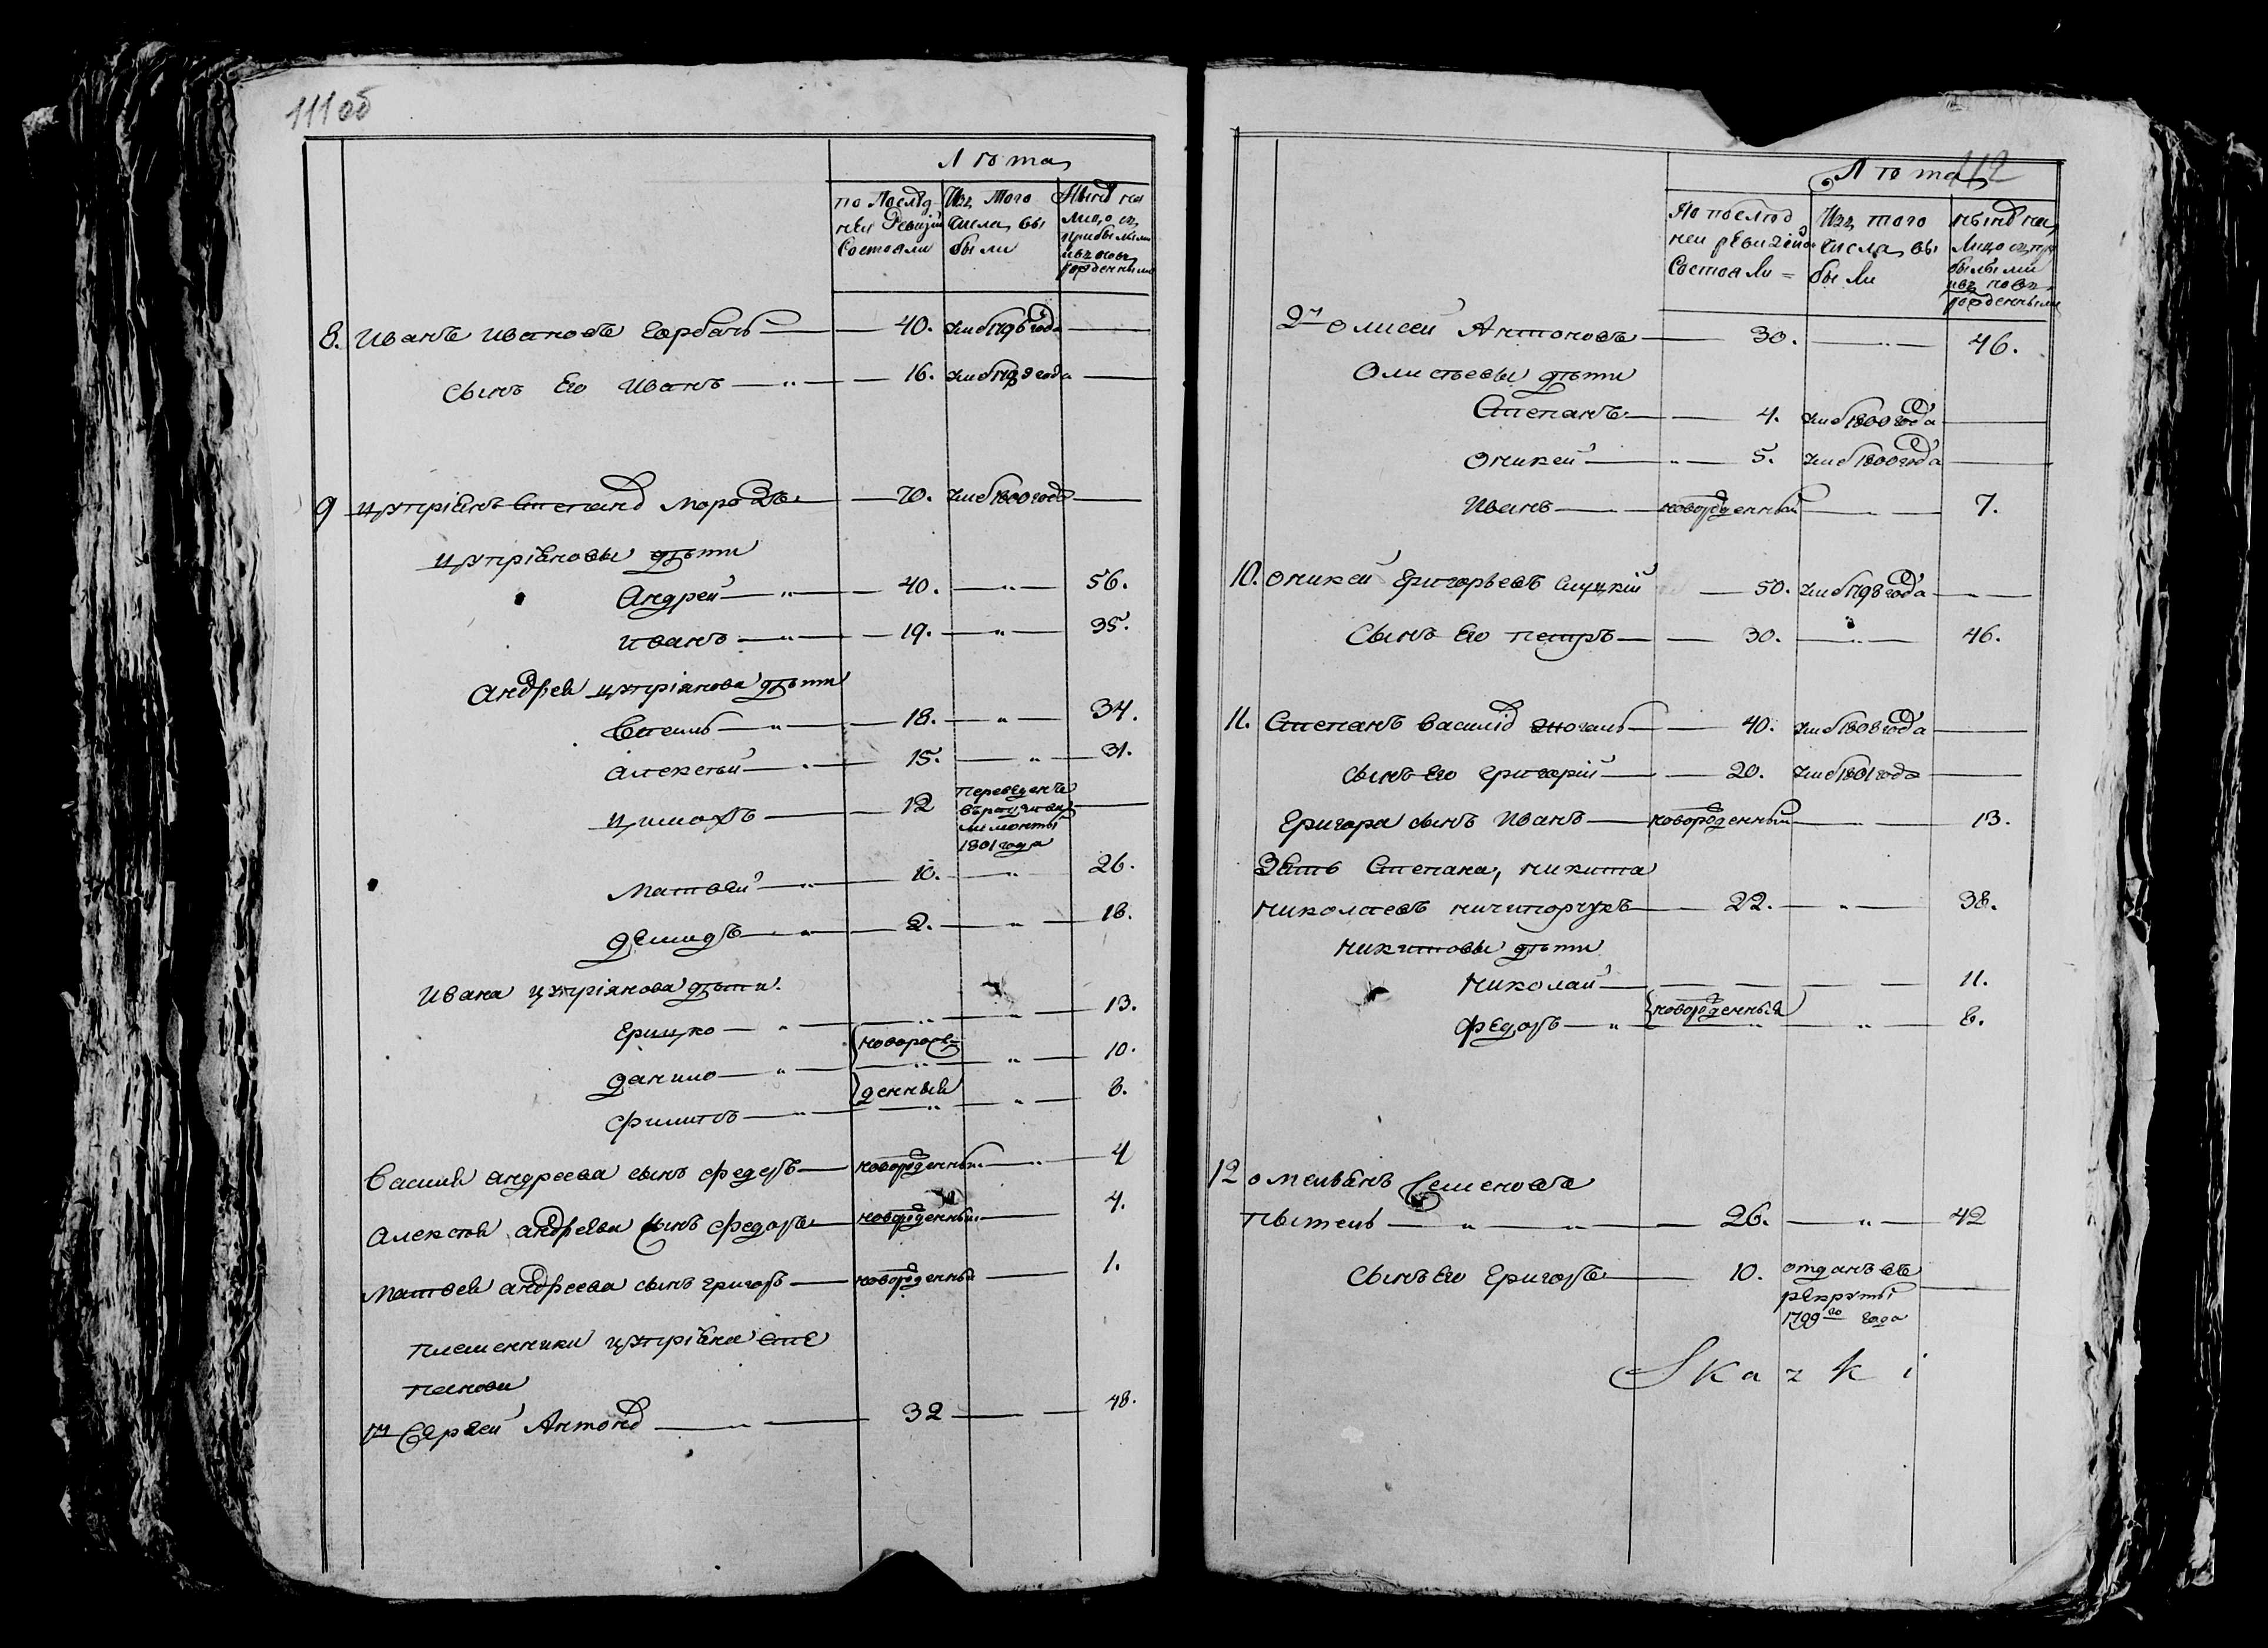 111 об
Лѣта
по послѣд Изъ того Нынѣ на
ней Ревизіи числа вы лицо съ
Состояли были прибылыми
и въ новь
рожденными
8. Иванъ Ивановъ Горбачь — 40. умеръ 1796 года —
сынъ Его Иванъ — 16. умеръ 1799 года —
9 Цупріянъ Степанов Морозъ — 70. умеръ 1800 года —
Цупріяновы дѣти
Андрей — 40. — 56.
Иванъ — 19. — 35.
Андрея Цупріянова дѣти
Василь — 18. — 34.
Алексѣй — 15. — 31.
Цимохъ — 12 переведенъ
1801 года
Матвей — 10. — 26.
Демидъ — 2. — 18.
Ивана Цупріянова дѣти.
Грицко — 13.
новорож
Данило — 10.
денныя
Филипъ — 8.
Василя Андреева сынъ Федоръ — новорожденный — 4
Алексѣя Андреева сынъ Федоръ — новорожденный — 4.
Матвея Андреева сынъ Григоръ — новорожденный — 1.
племенники Цупріяна Сте
панова
1й Сергей Антонов — 32 — 48.
112
Лѣта
По послѣд Изъ того нынѣ на
ней ревизіи числа вы лицо съ при
Состояли = были былыми
и въ новь
рожденными
2й Олисей Антоновъ — 30. — 46.
Олисѣевы дѣти
Степанъ — 4. умеръ 1800 года —
Оникей — 5. умеръ 1800 года —
Иванъ — новорожденный — 7.
10. Оникей Григорьевъ Слуцкій — 50. умеръ 1798 года —
Сынъ Его Петръ — 30. — 46.
11. Степанъ Василів — 40. умеръ 1808 года —
сынъ Его Григорій — 20. умеръ 1801 года —
Григора сынъ Иванъ — новорожденный — 13.
Зять Степана, Никита
Николаевъ Ничипорчукъ — 22. — 38.
Никитовы дѣти
Николай — 11.
новорожденныя
Федоръ — 8.
12 Омельянъ Семеновъ
— 26. — 42
Сынъ Его Григоръ — 10. отданъ въ
рекруты
1799го года
Skazki